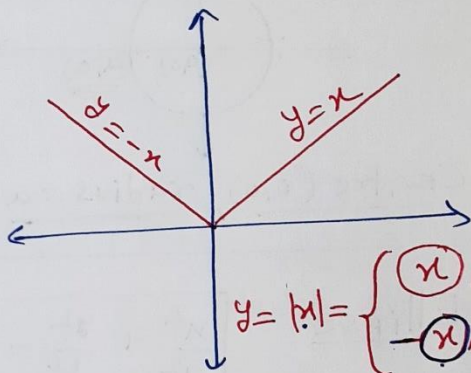 y=-x
y=x
y= |x|= { x
-x